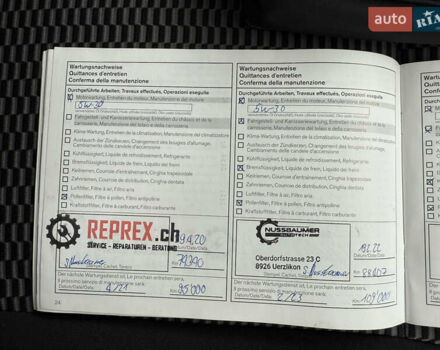 24 AUTO RIA
Wartungsnachweise
Quittances d'entretien
Conferma della manutenzione
Durchgeführte Arbeiten, Travaux effectués, Operazioni eseguite
Motorwartung, Entretien du moteur, Manutenzione del motore
5W-30
Fahrgestell- und Karosseriewartung, Entretien du châssis et de la
carrosserie, Manutenzione del telaio e della carrosseria
Klima-Wartung, Entretien de la climatisation, Manutenzione del climatizzatore
Austausch der Zündkerzen, Changement des bougies d'allumage,
Cambiamento delle candele d'accensione
Kühlflüssigkeit, Liquide de refroidissement, Refrigerante
Bremsflüssigkeit, Liquide de frein, Liquido dei freni
Keilriemen, Courroie d'entraînement, Cinghia trapezoidale
Zahnriemen, Courroie de distribution, Cinghia dentata
Luftfilter, Filtre à air, Filtro aria
Pollenfilter, Filtre à pollen, Filtro antipolline
Kraftstofffilter, Filtre à carburant, Filtro carburante
REPREX.ch
SERVICE - REPARATUREN - BERATUNG
Stempel, Cachet, Timbro
Datum/Date/Data
Km 79390
Der nächste Wartungsdienst ist, Le prochain entretien sera,
Il prossimo servizio di manutenzione sarà:
Datum/Date/Data 4/21 Km 95'000
24
Wartungsnachweise
Quittances d'entretien
Conferma della manutenzione
Durchgeführte Arbeiten, Travaux effectués, Operazioni eseguite
Motorwartung, Entretien du moteur, Manutenzione del motore
5W-30
Fahrgestell- und Karosseriewartung, Entretien du châssis et de la
carrosserie, Manutenzione del telaio e della carrosseria
Klima-Wartung, Entretien de la climatisation, Manutenzione del climatizzatore
Austausch der Zündkerzen, Changement des bougies d'allumage,
Cambiamento delle candele d'accensione
Kühlflüssigkeit, Liquide de refroidissement, Refrigerante
Bremsflüssigkeit, Liquide de frein, Liquido dei freni
Keilriemen, Courroie d'entraînement, Cinghia trapezoidale
Zahnriemen, Courroie de distribution, Cinghia dentata
Luftfilter, Filtre à air, Filtro aria
Pollenfilter, Filtre à pollen, Filtro antipolline
Kraftstofffilter, Filtre à carburant, Filtro carburante
NUSSBAUMER
TECH
Oberdorfstrasse 23 C
8926 Uerzlikon
Datum/Date/Data
Km
Der nächste Wartungsdienst ist, Le prochain entretien sera,
Il prossimo servizio di manutenzione sarà:
Datum/Date/Data 2/23 Km 109'000